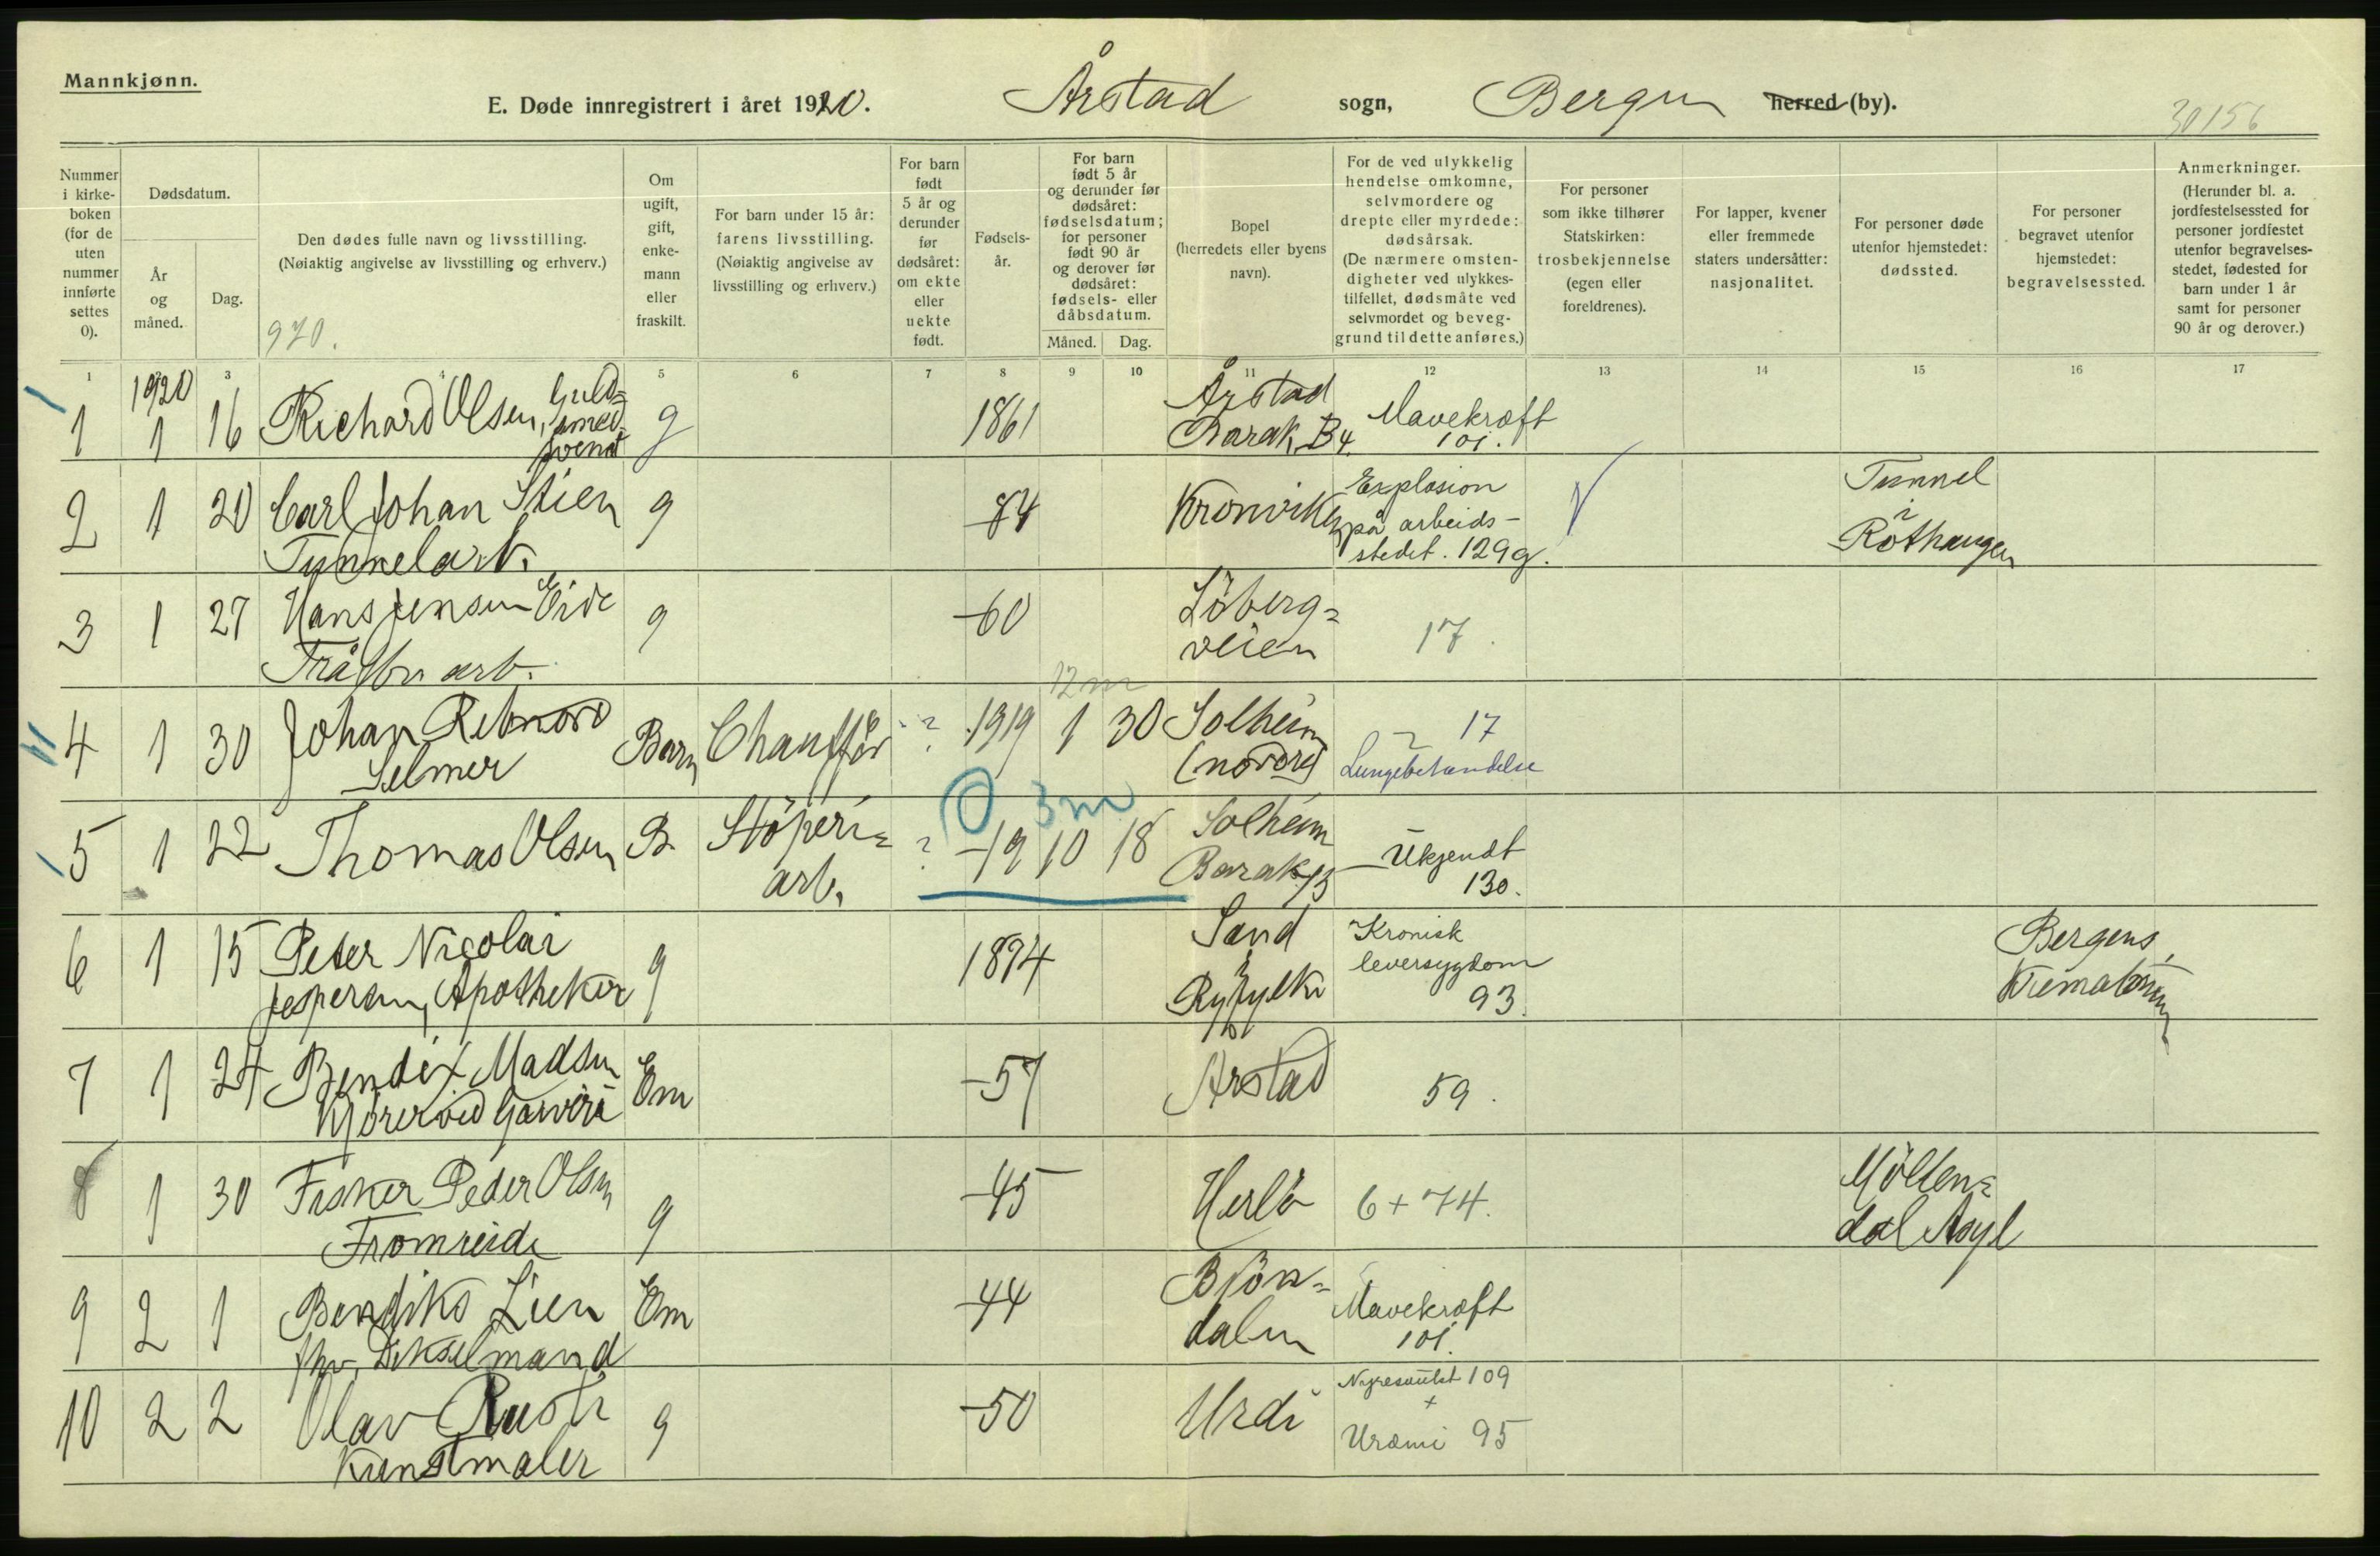 Mannkjønn.
E. Døde innregistrert i året 1920. Årstad sogn, Bergen herred (by).
30156
Nummer i kirkeboken (for de uten nummer innførte settes 0).
Dødsdatum.
År og måned.
Dag.
Den dødes fulle navn og livsstilling.
(Nøiaktig angivelse av livsstilling og erhverv.)
970.
Om ugift, gift, enkemann eller fraskilt.
For barn under 15 år: farens livsstilling. (Nøiaktig angivelse av livsstilling og erhverv.)
For barn født 5 år og derunder før dødsåret: om ekte eller uekte født.
Fødselsår.
For barn født 5 år og derunder før dødsåret: fødselsdatum; for personer født 90 år og derover før dødsåret: fødsels- eller dåbsdatum.
Måned. Dag.
Bopel (herredets eller byens navn).
For de ved ulykkelig hendelse omkomne, selvmordere og drepte eller myrdede: dødsårsak. (De nærmere omstendigheter ved ulykkestilfellet, dødsmåte ved selvmordet og beveggrund til dette anføres.)
For personer som ikke tilhører Statskirken: trosbekjennelse (egen eller foreldrenes).
For lapper, kvener eller fremmede staters undersåtter: nasjonalitet.
For personer døde utenfor hjemstedet: dødssted.
For personer begravet utenfor hjemstedet: begravelsessted.
Anmerkninger. (Herunder bl. a. jordfestelsessted for personer jordfestet utenfor begravelsesstedet, fødested for barn under 1 år samt for personer 90 år og derover.)
1 3 4 5 6 7 8 9 10 11 12 13 14 15 16 17
1920
1 1 16 Richard Olsen, Guldsmedsvend g 1861 Årstad Barak B4. Mavekræft 101.
2 1 20 Carl Johan Stien Tunnelarb. g -84 Kronviken Explosion på arbeidsstedet. 129g. Tunnel i Röthaugen
3 1 27 Hans Jensen Eide g -60 Löbergveien 17.
12 m
4 1 30 Johan Selmer Barn Chaufför ? 1919 1 30 Solheim (nordre) ? 17 Lungebetændelse
0 3 m
5 1 22 Thomas Olsen B. Stöperiarb. ? -19 10 18 Solheim Barak 13 Ukjendt 130.
6 1 15 Peter Nicolai Jespersen, Apotheker g 1874 Sand i Ryfylke Kronisk leversygdom 93. Bergens Krematorium
7 1 24 Bendix Madsen Kjörer ved Garveri Em -57 Årstad 59.
8 1 30 Fisker Peder Olsen Fromreide g -45 Herlö 6+74. Möllendal Asyl
9 2 1 Bendiks Lien Em -44 Björndalen Mavekræft 101.
10 2 2 Olav Rusti Kunstmaler g -50 Urdi Nyresvulst 109 + Uræmi 95